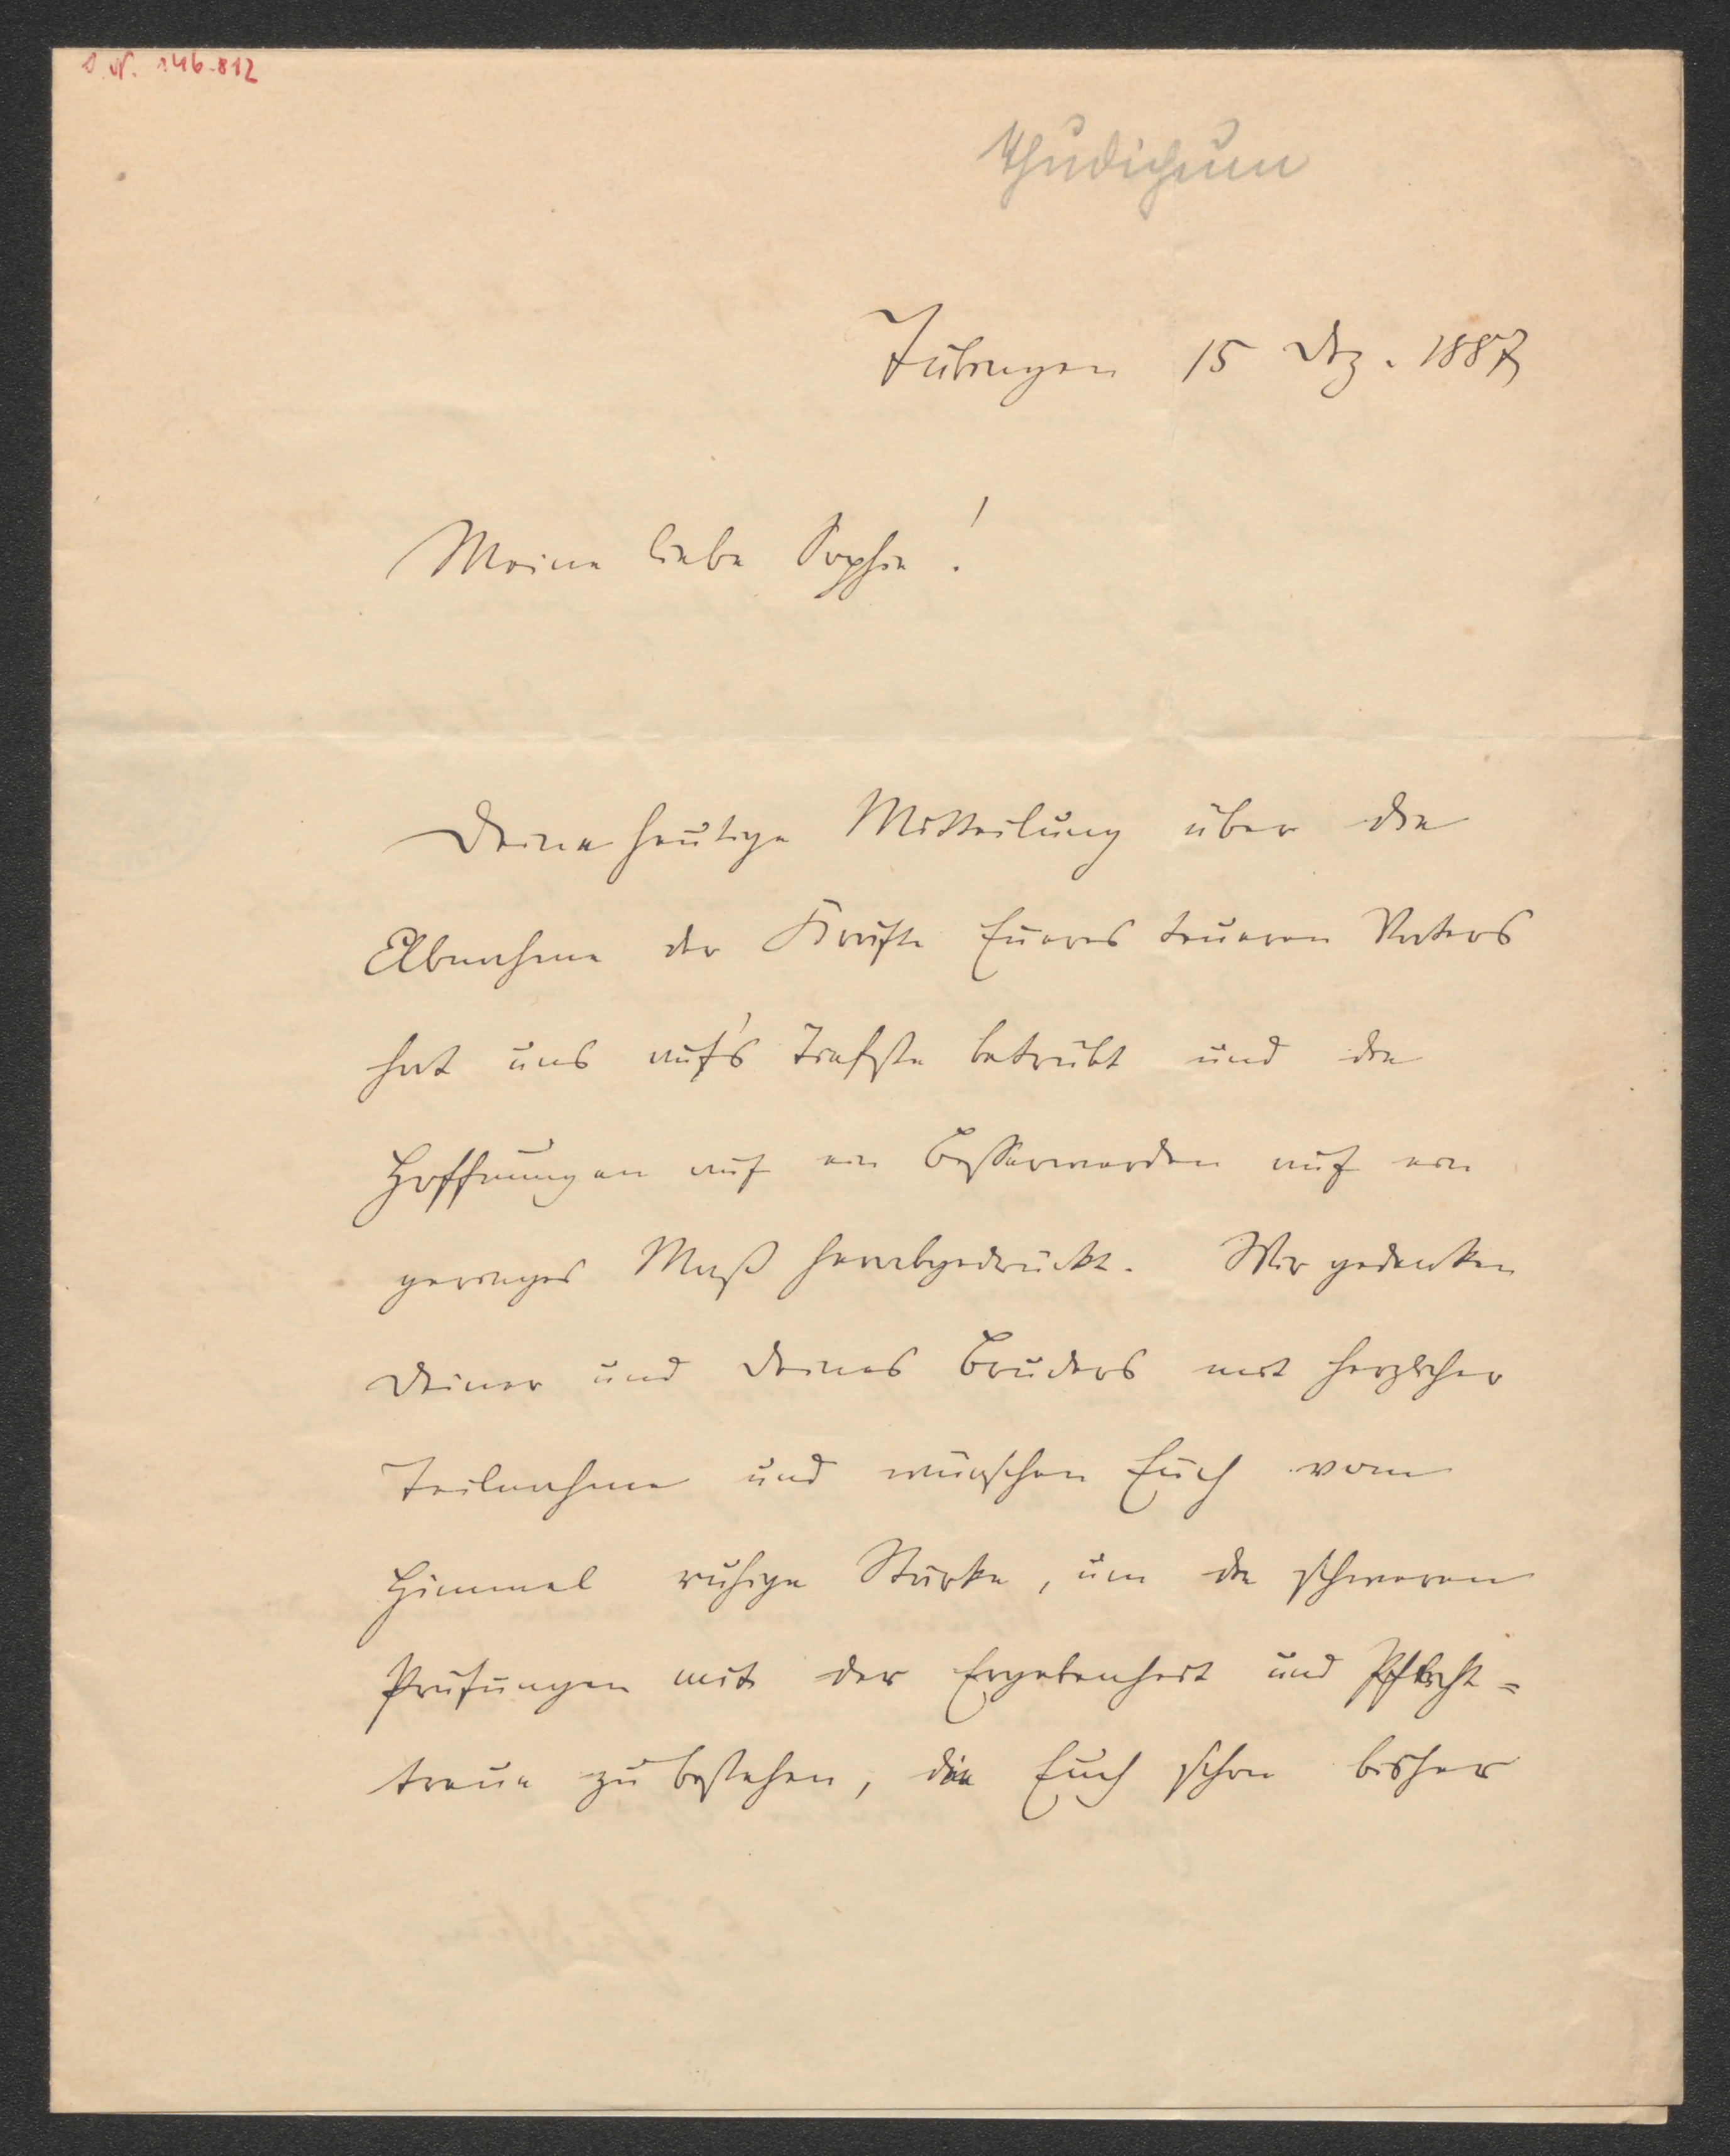 I. N. 146.812
Thudichum
Tübingen 15 Dez. 1887
Meine liebe Sophie!
Deine heutige Mitteilung über die
Abnahme der Kräfte Eueres teueren Vaters
hat uns auf's Tiefste betrübt und die
Hoffnungen auf ein Besserwerden auf ein
geringes Maß herabgedrückt. Wir gedenken
Deiner und Deines Bruders mit herzlicher
Teilnahme und wünschen Euch vom
Himmel ruhige Stärke, um die schweren
Prüfungen mit der Ergebenheit und Pflicht=
treue zu bestehen, die Euch schon bisher